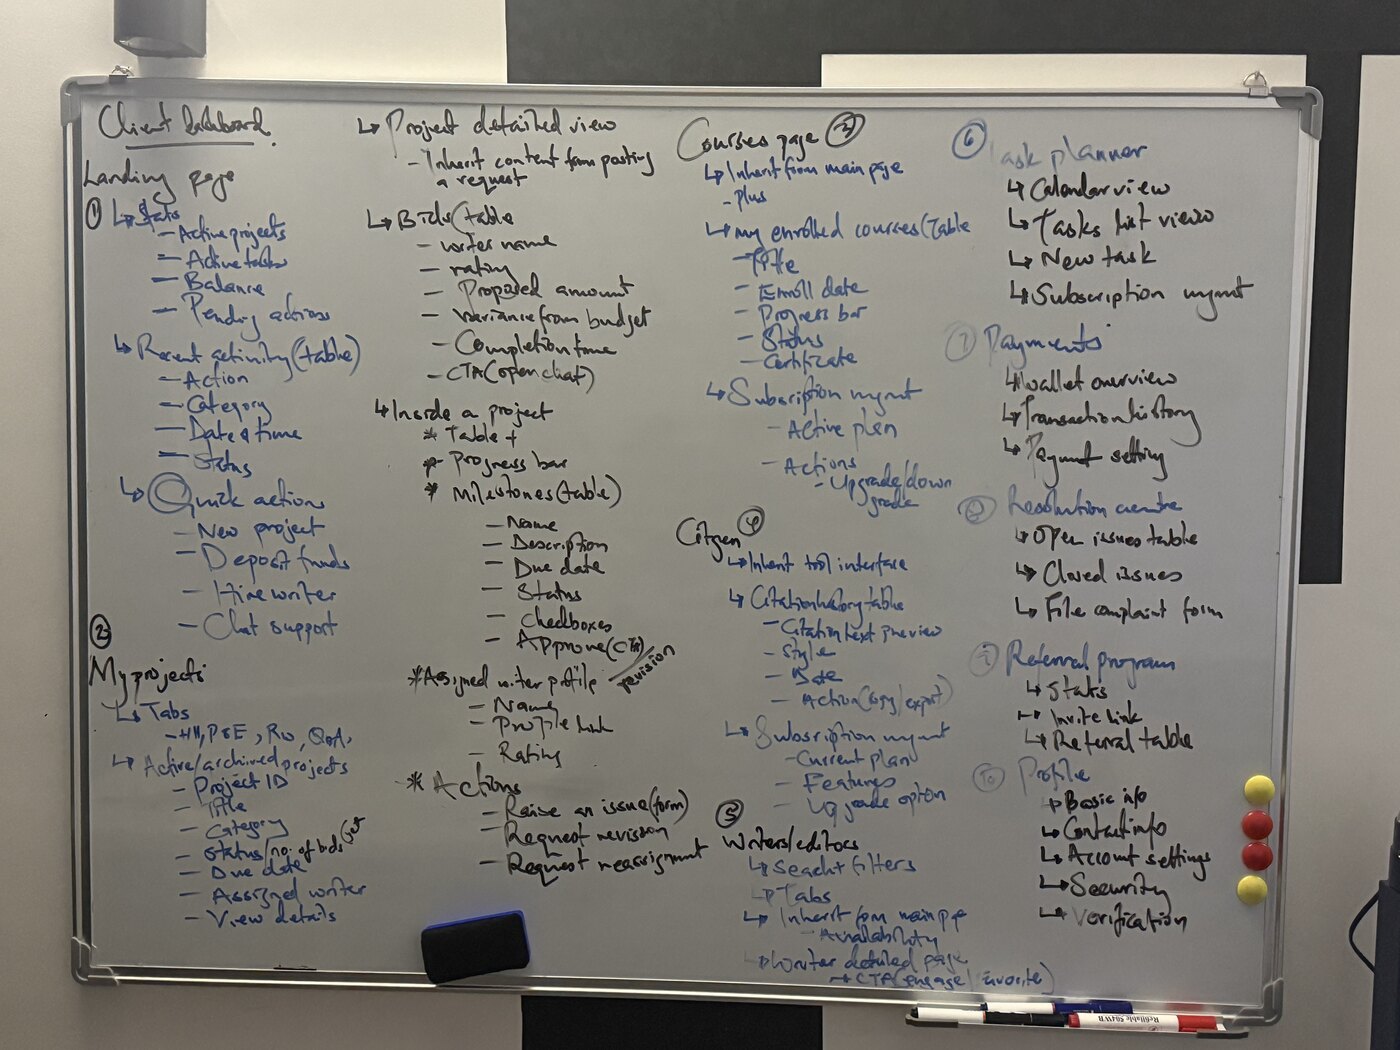 Client dashboard.
Landing page
1 ↳ Stats
- Active projects
- Active tasks
- Balance
- Pending actions
↳ Recent activity (table)
- Action
- Category
- Date & time
- Status
↳ Quick actions
- New project
- Deposit funds
- Hire writer
- Chat support
2
My projects
↳ Tabs
- HH, PSE, RW, Q&A,
↳ Active/archived projects
- Project ID
- Title
- Category
- Status/no. of bids
- Due date
- Assigned writer
- View details
↳ Project detailed view
- Inherit content from posting
a request
↳ Bids (table
- writer name
- rating
- Proposed amount
- Variance from budget
- Completion time
- CTA (open chat)
↳ Inside a project
* Table +
* Progress bar
* Milestones (table)
- Name
- Description
- Due date
- Status
- Checkboxes
- Approve (CTA)/
revision
* Assigned writer profile
- Name
- Profile link
- Rating
* Actions
- Raise an issue (form)
- Request revision
- Request reassignment
Courses page 3
↳ Inherit from main page
- plus
↳ my enrolled courses (Table
- Title
- Enroll date
- Progress bar
- Status
- Certificate
↳ Subscription mgmt
- Active plan
- Actions
- Upgrade/down
grade
Citgen 4
↳ Inherit tool interface
↳ Citation history table
- Citation text preview
- Style
- Date
- Action (copy/export)
↳ Subscription mgmt
- Current plan
- Features
- Upgrade option
5
Writers/editors
↳ Search filters
↳ Tabs
↳ Inherit from main pge
- Availability
↳ Writer detailed page
→ CTA (engage/favorite)
6 Task planner
↳ Calendar view
↳ Tasks list view
↳ New task
↳ Subscription mgmt
7 Payments
↳ Wallet overview
↳ Transaction history
↳ Paymnt setting
8 Resolution centre
↳ Open issues table
↳ Closed issues
↳ File complaint form
9 Referral program
↳ Stats
↳ Invite link
↳ Referral table
10 Profile
↳ Basic info
↳ Contact info
↳ Account settings
↳ Security
↳ Verification